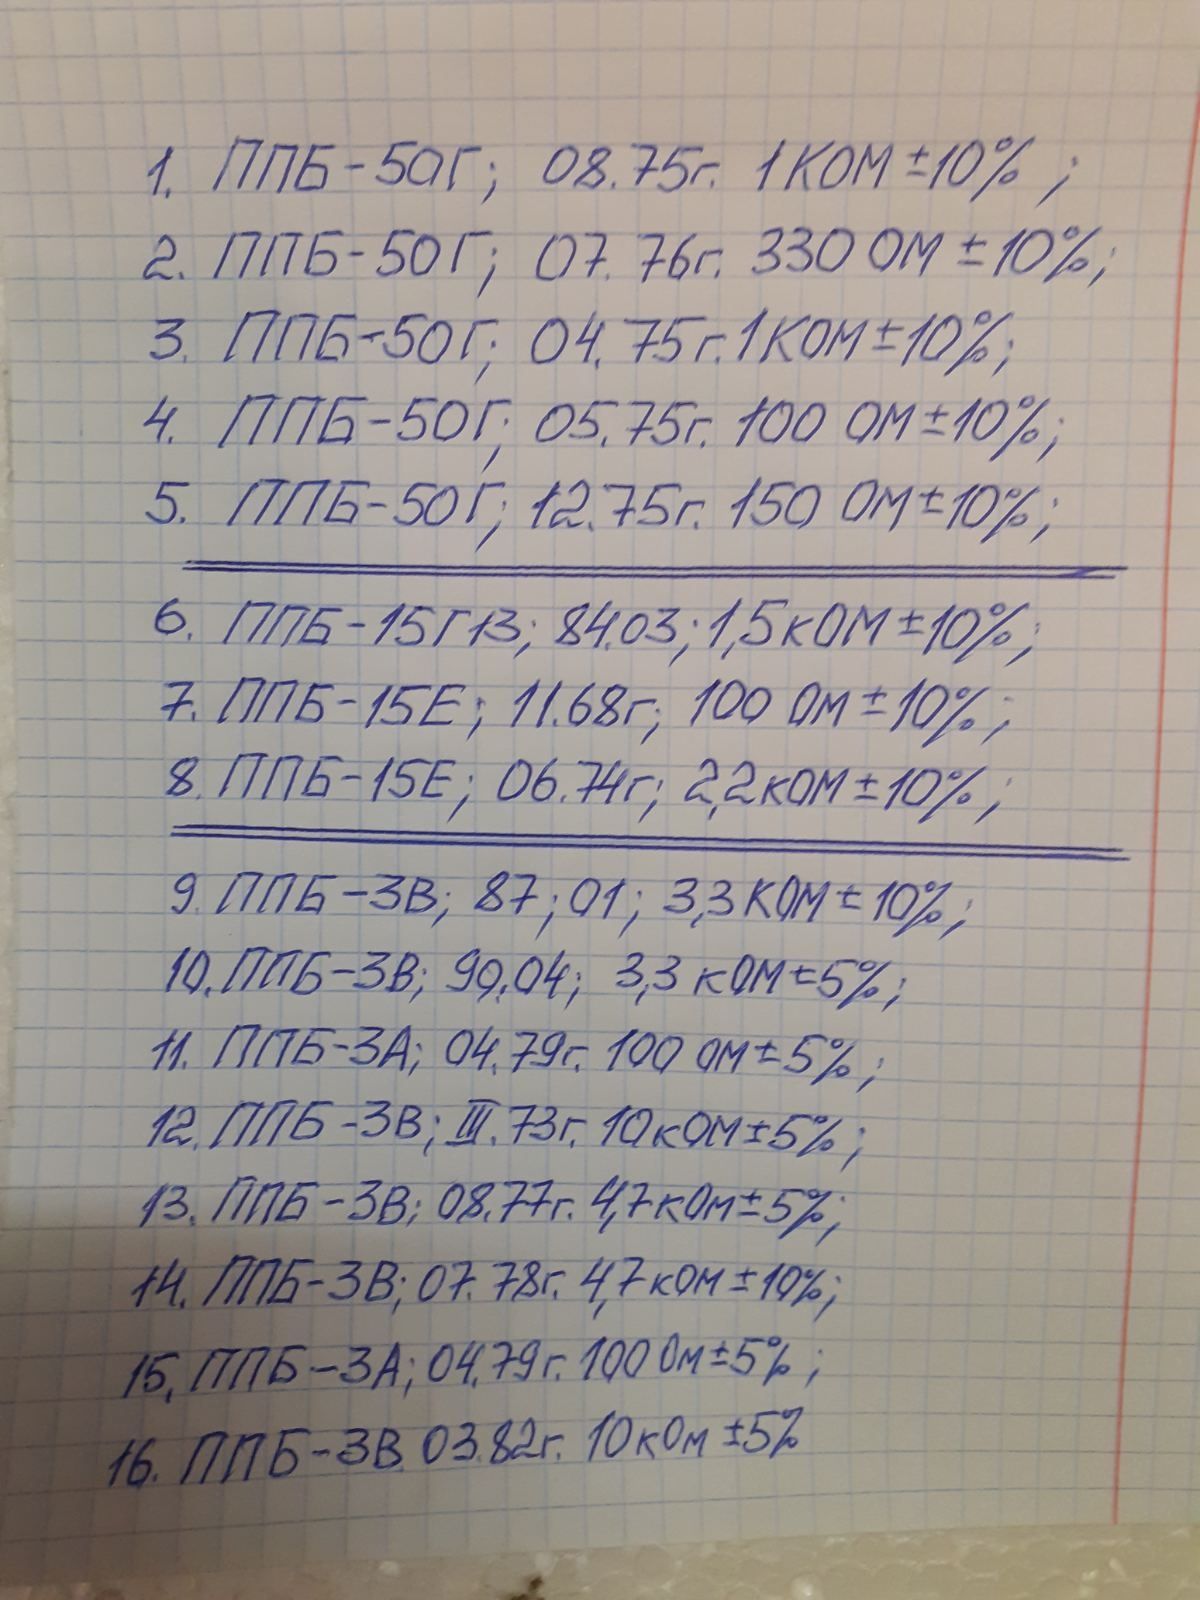 1. ППБ-50Г; 08.75г. 1 КОМ ±10% ;
2. ППБ-50Г; 07.76г. 330 ОМ ±10%;
3. ППБ-50Г; 04.75г. 1 КОМ ±10%;
4. ППБ-50Г; 05.75г. 100 ОМ ±10%;
5. ППБ-50Г; 12.75г. 150 ОМ ±10%;
6. ППБ-15Г13; 84.03; 1,5 кОМ ±10%;
7. ППБ-15Е; 11.68г; 100 Ом ±10%;
8. ППБ-15Е; 06.74г; 2,2 кОМ ±10%;
9. ППБ-3В; 87; 01; 3,3 КОМ ± 10%;
10. ППБ-3В; 90.04; 3,3 кОМ ±5%;
11. ППБ-3А; 04.79г. 100 Ом ±5%;
12. ППБ-3В; III.73г. 10 кОМ ±5%;
13. ППБ-3В; 08.77г. 4,7 кОм ±5%;
14. ППБ-3В; 07.78г. 4,7 кОм ±10%;
15. ППБ-3А; 04.79г. 100 Ом ±5% ;
16. ППБ-3В. 03.82г. 10 кОм ±5%